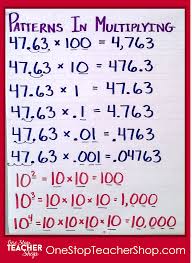 PATTERNS IN MULTIPLYING
47.63 × 100 = 4,763
47.63 × 10 = 476.3
47.63 × 1 = 47.63
47.63 × .1 = 4.763
47.63 × .01 = .4763
47.63 × .001 = .04763
10² = 10 × 10 = 100
10³ = 10 × 10 × 10 = 1,000
10⁴ = 10 × 10 × 10 × 10 = 10,000
One Stop
TEACHER
Shop
OneStopTeacherShop.com